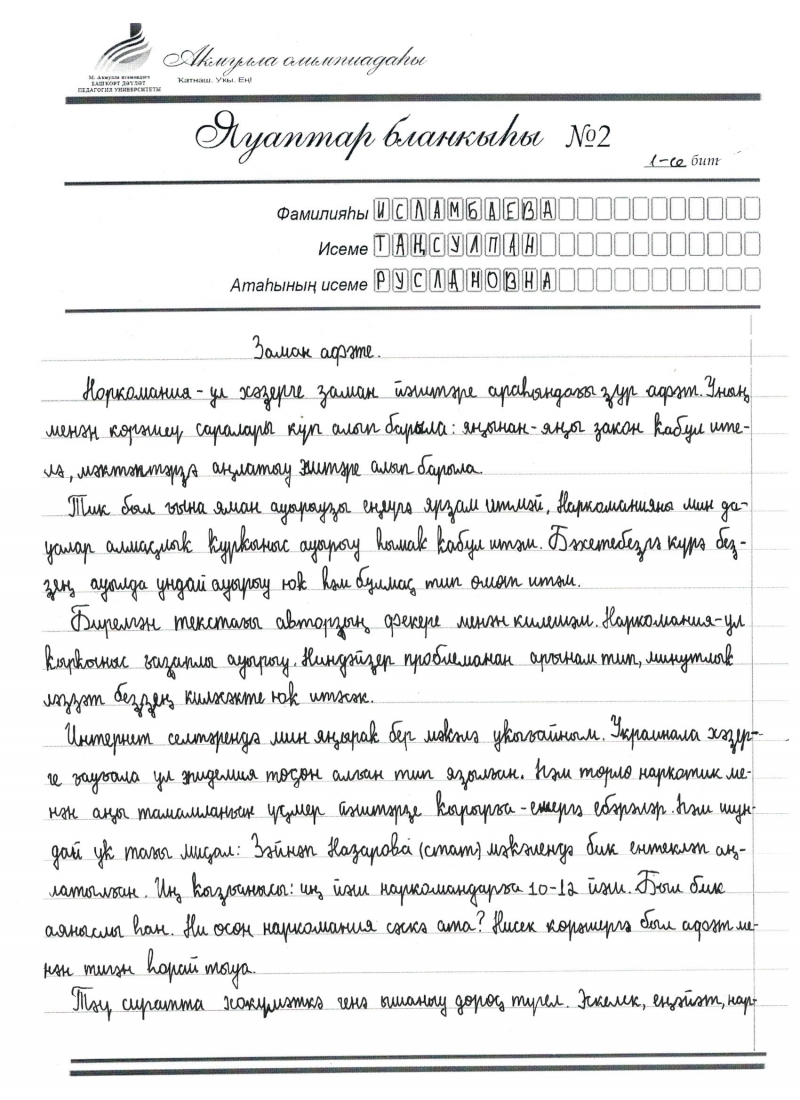 М. Акмулла исемендәге
БАШҠОРТ ДӘҮЛӘТ
ПЕДАГОГИЯ УНИВЕРСИТЕТЫ
Аҡмулла олимпиадаһы
Ҡатнаш. Уҡы. Ең!
Яуаптар бланкыһы №2
1-се бит
Фамилияһы ИСЛАМБАЕВА
Исеме ТАҢСУЛПАН
Атаһының исеме РУСЛАНОВНА
Заман афәте.
Норкомания - ул хәҙерге заман йәштәре араһындағы ҙур афәт. Уның
менән көрәшеү саралары күп алып барыла: яңынан-яңы закон ҡабул ите-
лә, мәктәптәрҙә аңлатыу эштәре алып барыла.
Тик был ғына яман ауырыуҙы еңеүгә ярҙам итмәй. Наркоманияны мин да-
уалар алмаҫлыҡ ҡурҡыныс ауырыу һымаҡ ҡабул итәм. Бәхетебеҙгә күрә беҙ-
ҙең ауылда ундай ауырыу юҡ һәм булмаҫ тип өмөт итәм.
Бирелгән текстағы авторҙың фекере менән килешәм. Наркомания-ул
ҡырҡыныс ғазаплы ауырыу. Ниндәйҙер проблеманан арынам тип, минутлыҡ
ләззәт беҙҙең киләсәкте юҡ итәсәк.
Интернет селтәрендә мин яңыраҡ бер мәҡәлә уҡығайным. Украинала хәҙер-
ге ваҡытта ул эпидемия төҫөн алған тип яҙылған. Һәм төрлө наркотик ме-
нән аңы тамамланған үҫмер йәштәрҙе ҡырырға - үлтерергә ебәрәләр. Һәм шун-
дай уҡ тағы миҫал: Зәйнәп Назарова (стат) мәҡәлендә бик ентекләп аң-
латылған. Иң ҡыҙғанысы: иң йәш наркомандарға 10-12 йәш. Был бик
аяныслы һан. Ни өсөн наркомания сәскә ата? Нисек көрәшергә был афәт ме-
нән тигән һорау тыуа.
Тәү сиратта хөкүмәткә генә ышаныу дөрөҫ түгел. Эскелек, енәйәт, нар-